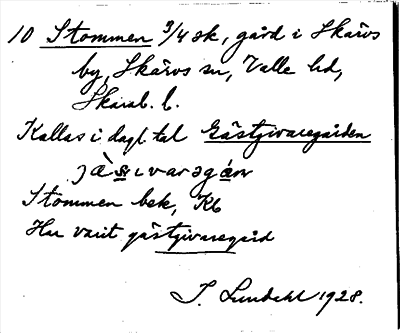 10 Stommen 3/4 sk, gård i Skärvs
by, Skärvs sn, Valle hd,
Skarab. l.
Kallas i dagl. tal Gästgivaregården
Stommen bek, Kb
Har varit gästgivaregård
J. Lundahl 1928.